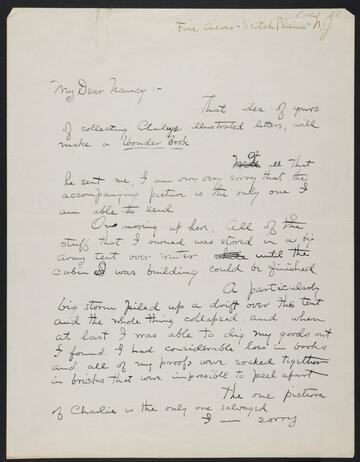 Five Acres - Scotch Plains - N.J.
"My Dear Nancy :-
That idea of yours
of collecting Charleys illustrated letters, will
make a Wonder Book
Of all that
he sent me, I am very very sorry that the
accompanying picture is the only one I
am able to send
On moving up here, all of the
stuff that I owned was stored in a big
Army tent over winter until the
cabin I was building could be finished
A particularly
big storm piled up a drift over this tent
and the whole thing collapsed, and when
at last I was able to dig my goods out
I found I had considerable loss in books
and all of my proofs were soaked together
in bricks that were impossible to peel apart
The one picture
of Charlie is the only one salvaged
I am sorry